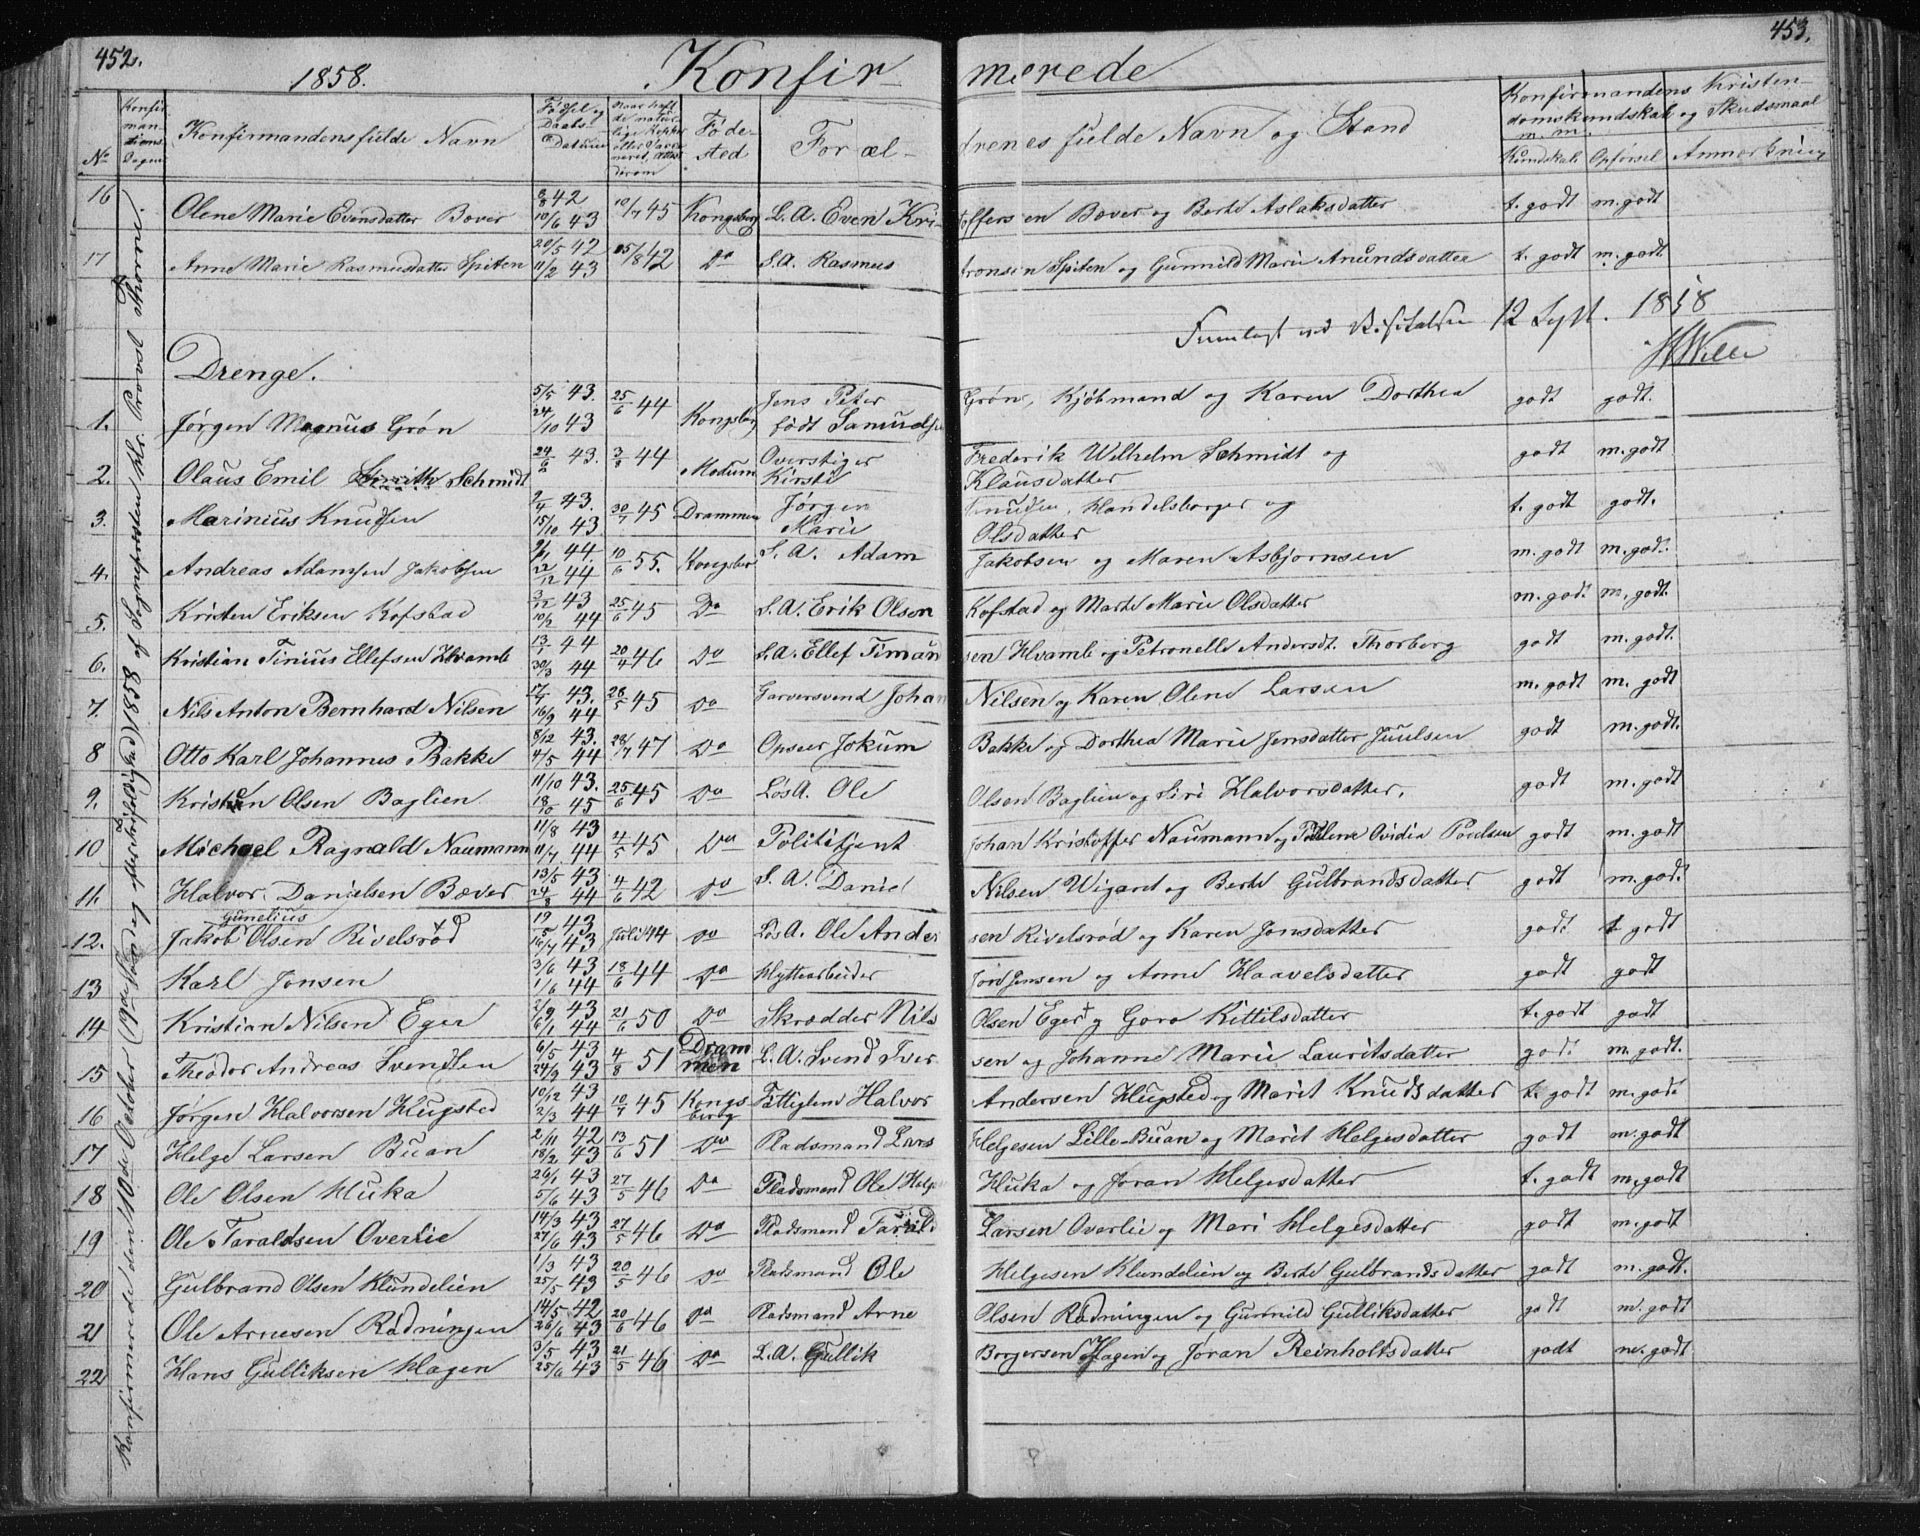 452.
453.
1858.
Konfirmerede
No
Konfirmandens fulde Navn
Fødsel og Daabs Datum
Fødested
Forældrenes fulde Navn og Stand
Konfirmandens Kristendomskundskab og Skudsmaal m. m.
Kundskab. Opførsel Anmærkning
Konfirmerede den 10de October (19de Sønd. efter Trifoldighed) 1858 af Sognepresten Hr. Provst Thorne.
16 Olene Marie Evensdatter Bæver 10/6 43 10/7 45 Kongsberg L. A. Even Kristoffersen Bæver og Berte Aslaksdatter t. godt m. godt
17 Anne Marie Rasmusdatter Spiten 20/5 42 11/2 43 Do S. A. Rasmus Spiten og Gunnild Marie Anundsdatter t. godt m. godt
Fremlagt ved Visitatsen 12 Sept. 1858
Drenge.
1. Jørgen Magnus Grøn 5/5 43. 24/10 43 25/6 44 Kongsberg Jens Peter Grøn, Kjøbmand og Karen Dorthea født godt godt.
2. Olaus Emil Schmidt 43. 3/8 44 Modum Overstiger Frederik Wilhelm Schmidt og Kirsti Klausdatter godt m. godt
3. Marinius Knudsen 43. 15/10 43 30/7 45 Drammen Jørgen Knudsen, Handelsborger og Marie Olsdatter t. godt godt.
4. Andreas Adamsen Jakobsen 44. 22/12 44 10/6 55. Kongsber S. A. Adam Jakobsen og Maren Asbjørnsen m. godt m. godt.
5. Kristen Eriksen Kofstad 3/12 43 10/2 44 25/6 45 Do S. A. Erik Olsen Kofstad og Marte Marie Olsdatter m. godt m. godt.
6. Kristian Tinius Ellefsen Hvamb 13/1 44 30/3 44 20/4 46 Do S. A. Ellef Timansen Hvamb og Petronelle Andersdt. Thorberg godt m. godt.
7. Nils Anton Bernhard Nilsen 43. 44 26/5 45 Do Garversvend Johan Nilsen og Karen Olene Larsen m. godt m. godt
8 Otto Karl Johannes Bakke 8/12 43. 4/5 44 28/7 47 Do Opseer Jokum Bakke og Dorthea Marie Jensdatter Juulsen godt m. godt.
9. Kristian Olsen Baglien 11/10 43. 45 25/6 45 Do Løs A. Ole Olsen Baglien og Siri Halvorsdatter. godt m. godt
10 Michael Ragnald Naumann 11/8 43 11/7. 44 4/5 45 Do Politibjent Johan Kristoffer Naumann og Ovidia Povelsen godt m. godt
11. Halvor Danielsen Bæver 13/5 43 24/8 44 4/6 42 Do S. A. Daniel Nilsen Wigaret og Berte Gulbrandsdatter godt m. godt
12. Jakob Gunelius Olsen Rivelsrød 19/5 43 16/7 43 Juli 44 Do Løs A. Ole Andersen Rivelsrød og Karen Jonsdatter godt t godt
13 Karl Jonsen 3/6 43 1/6 44 18/6 44 Do Hyttearbeider Jon Jensen og Anne Haavelsdatter godt godt
14 Kristian Nilsen Eger 2/9 43 6/1 44 21/6 50 Do Skrædder Nils Olsen Eger og Goro Kittilsdatter t. godt godt
15 Theodor Andreas Svendsen 6/5 43 24/9 43 4/8 51 Drammen L. A. Svend Iversen og Johanne Marie Lauritsdatter godt m. godt.
16 Jørgen Halvorsen Hugsted 10/12 43 2/3 44 10/7 45 Kongsberg Fattiglem Halvor Andersen Hugsted og Marit Knudsdatter t. godt m. godt
17 Helge Larsen Buan 2/11 42 18/2 43 13/6 51 Do Pladsmand Lars Helgesen Lille-Buan og Marit Helgesdatter godt m. godt
18 Ole Olsen Huka 26/1 43 5/6 43 27/5 46 Do Pladsmand Ole Helgesen Huka og Jøran Helgesdatter t. godt m. godt
19 Ole Taraldsen Overlie 14/3 43 27/6 43 27/5 46 Do Pladsmand Tarald Larsen Overlie og Mari Helgesdatter godt m. godt
20 Gulbrand Olsen Klundelien 1/3 43 25/5 43 20/5 46 Do Pladsmand Ole Helgesen Klundelien og Berte Gulbrandsdatter godt m. godt.
21 Ole Arnesen Rådningen 14/5 42 26/6 43 20/6 46 Do Pladsmand Arne Olsen Rådningen og Gunnild Gulliksdatter godt m. godt
22 Hans Gulliksen Hagen 3/5 43 25/6 43 21/5 46 Do L. A. Gullik Borgersen Hagen og Jøran Reinholtsdatter godt m. godt